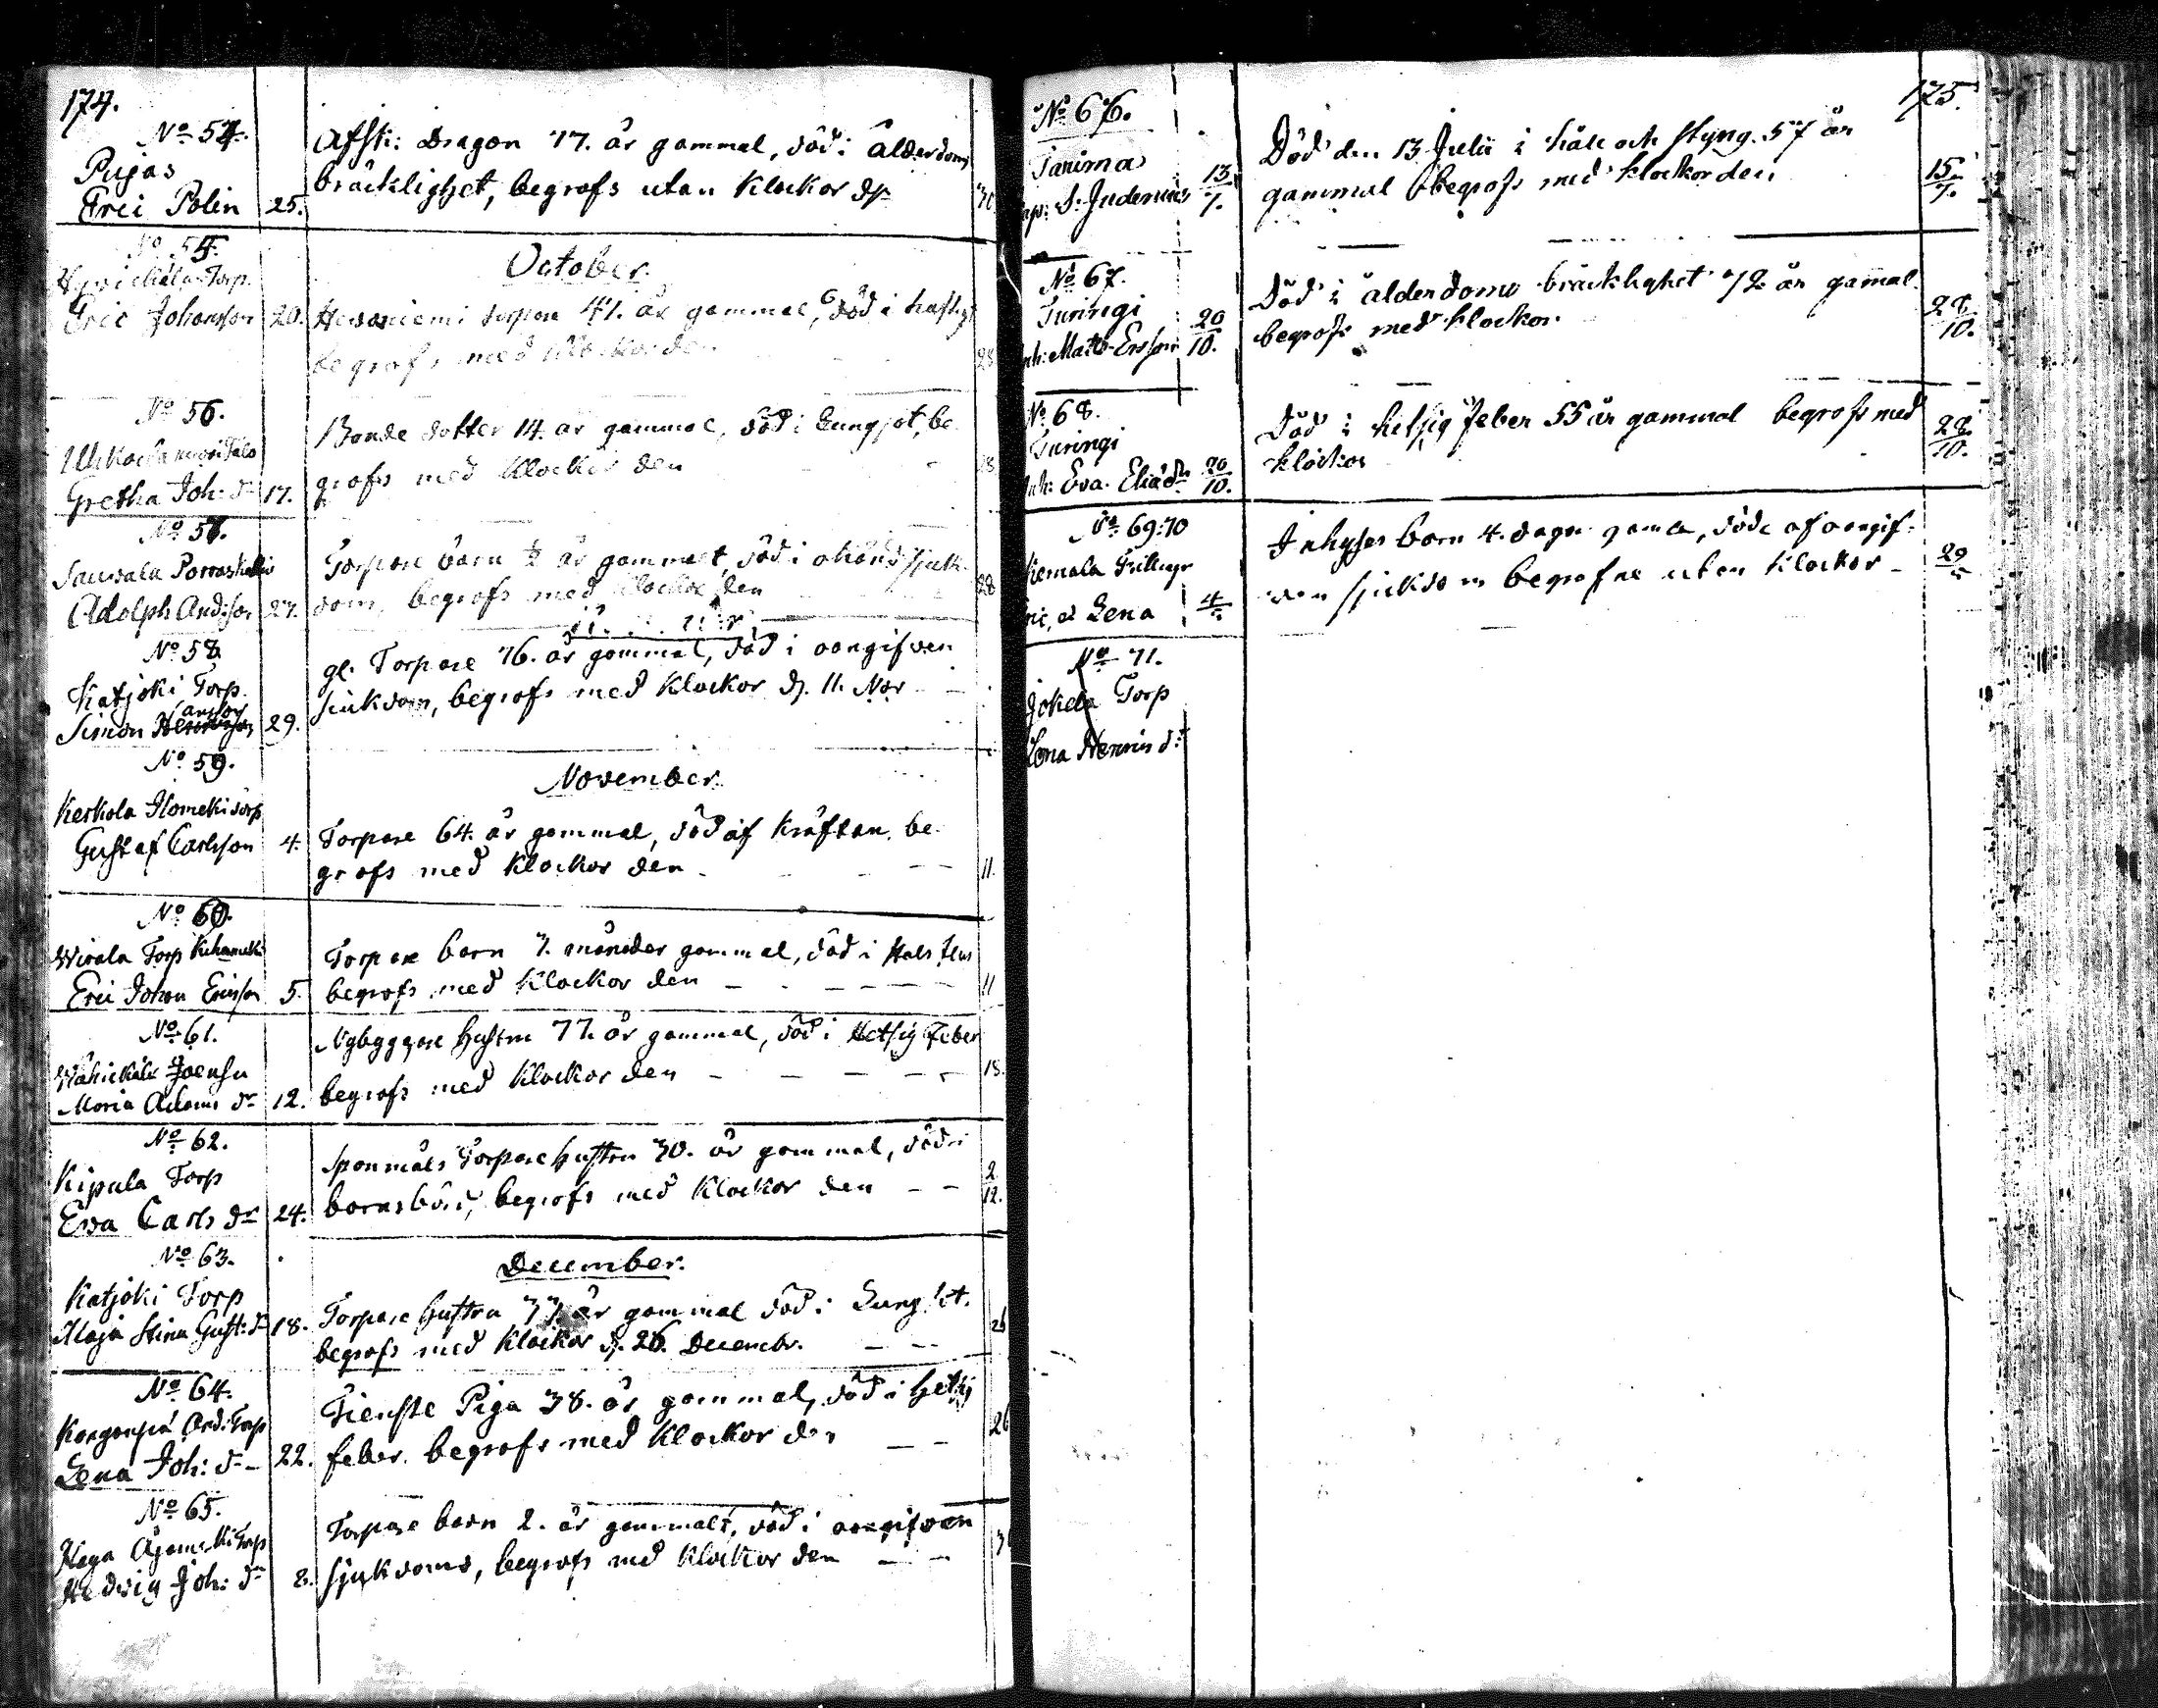 174.
No 54.
Pujas
Eric Polin 25.
Afsk: dragon 77. år gammal, död i ålderdoms
bräcklighet, begrofs utan Klockor d 30
October.
No 55.
Torp.
Eric Johansson 20.
torpare 41. år gammal, död i
begrofs med Klockor den 28
No 56.
Gretha Joh: dr 17.
Bonde dotter 14. år gammal, död i Lungsot, be
grofs med Klockor den 28
No 57.
Adolph And:son 27.
Torpare barn ½ år gammalt, död i okänd sjuk
dom, begrofs med Klockor den 28
No 58.
Katjoki Torp.
Simon 29.
gl. Torpare 76. år gammal, död i oangifven
sjukdom, begrofs med Klockor d. 11. Nov
November.
No 59.
Kerkola Torp
Gustaf Carlsson 4.
Torpare 64. år gammal, död af kräftan, be
grofs med Klockor den 11.
No 60.
Wirala Torp
Eric Johan Ericsson 5.
Torpare barn 7. månader gammal, död i Hals flus
begrofs med Klockor den 11
No 61.
Maria Adams dr 12.
Nybyggare hustru 77. år gammal, död i Hetsig Feber
begrofs med Klockor den 18.
No 62.
Kipula Torp
Eva Carls dr 24.
Sponmåls Torpare hustru 30. år gammal, död i
barnsbörd, begrofs med Klockor den 2/12.
December.
No 63.
Katjoki Torp
Maja Stina Gust: dr 18.
Torpare hustru 77 år gammal död i Lungsot.
begrofs med Klockor d. 26. Decembr. 26
No 64.
And: Torp
Lena Joh: dr 22.
Tienste Piga 38. år gammal, död i hetsig
feber. begrofs med Klockor den 26
No 65.
Torp
Hedvig Joh: dr 8.
Torpare barn 2. år gammalt, död i oangifven
sjukdoms, begrofs med Klockor den 31
175.
No 66.
Tanima
S: Judenius 13/7.
Död den 13 Julii i håll och styng. 57 år
gammal begrofs med klockor den 15/7.
No 67.
Turingi
Matts Ersson 20/10.
Död i ålderdoms bräcklighet 72 år gamal.
begrofs med klockor. 28/10.
No 68.
Turingi
Eva Eliædr 20/10.
Död i hetsig feber 55 år gammal begrofs med
klockor 28/10.
No 69:70
Eric, o Lena 4/
Inhyses barn 4. dagar gamla, döde af oangif-
ven sjukdom begrofne utan Klockor 29/
No 71.
Jokela Torp
Lena Henrics dr